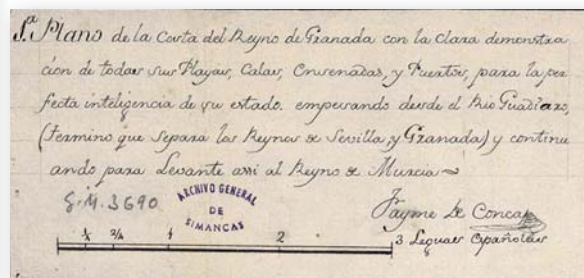 1.ª Plano de la Costa del Reyno de Granada con la clara demonstra
cion de todas sus Playas, Calas, Ensenadas, y Puertos, para la per
fecta inteligencia de su estado. empesando desde el Rio Guadiaro,
(termino que separa los Reynos de Sevilla, y Granada) y continu
ando para Levante assi al Reyno de Murcia
G.M. 3690
ARCHIVO GENERAL
DE
SIMANCAS
Jayme de Conca
1 2 3 Leguas Españolas